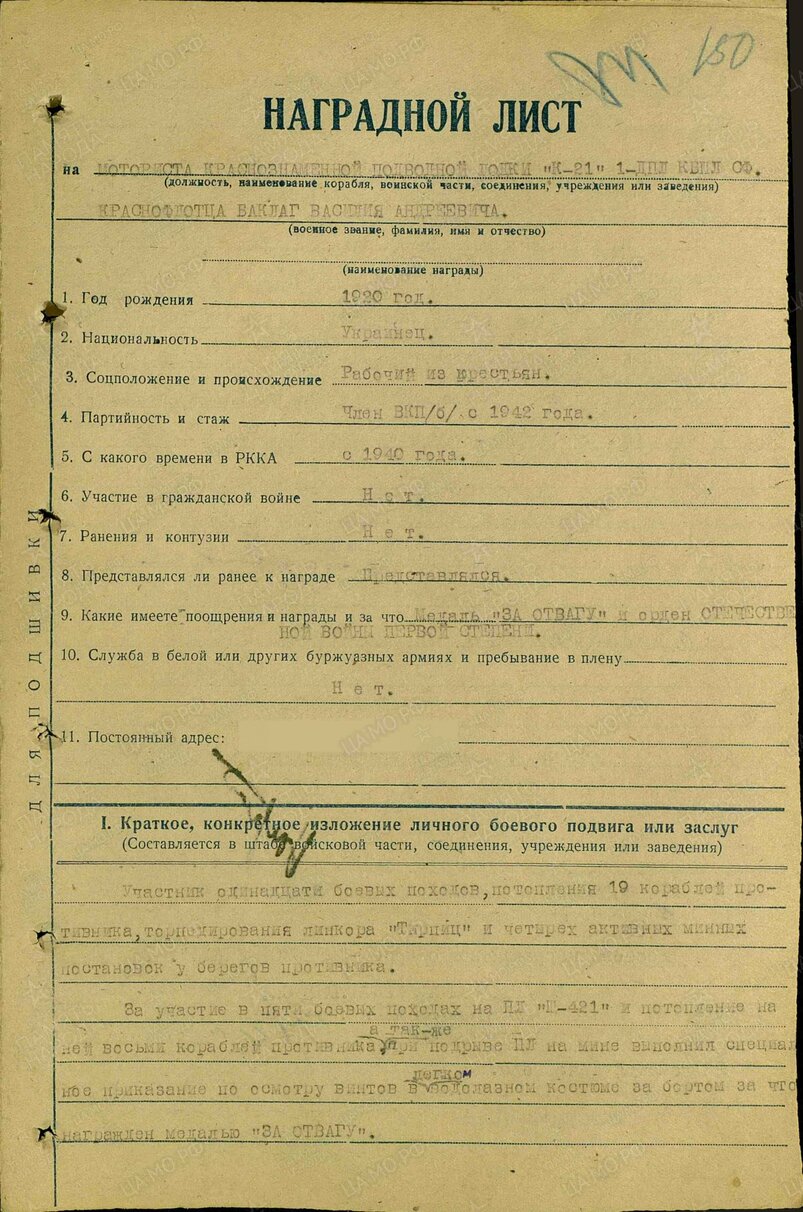 150
НАГРАДНОЙ ЛИСТ
на МОТОРИСТА КРАСНОЗНАМЕННОЙ ПОДВОДНОЙ ЛОДКИ "К-21" 1-ДПЛ КБПЛ СФ.
(должность, наименование корабля, воинской части, соединения, учреждения или заведения)
КРАСНОФЛОТЦА БАКЛАГ ВАСИЛИЯ АНДРЕЕВИЧА.
(военное звание, фамилия, имя и отчество)
(наименование награды)
1. Год рождения 1920 год.
2. Национальность Украинец.
3. Соцположение и происхождение Рабочий из крестьян.
4. Партийность и стаж Член ВКП/б/ с 1942 года.
5. С какого времени в РККА с 1940 года.
6. Участие в гражданской войне Нет.
7. Ранения и контузии Нет.
8. Представлялся ли ранее к награде Представлялся.
9. Какие имеете поощрения и награды и за что Медаль "ЗА ОТВАГУ" и орден ОТЕЧЕСТВЕН
НОЙ ВОЙНЫ ПЕРВОЙ СТЕПЕНИ.
10. Служба в белой или других буржуазных армиях и пребывание в плену
Нет.
11. Постоянный адрес:
ДЛЯ ПОДШИВКИ
I. Краткое, конкретное изложение личного боевого подвига или заслуг
(Составляется в штабе войсковой части, соединения, учреждения или заведения)
Участник одинадцати боевых походов, потопления 19 кораблей про-
тивника, торпедирования линкора "Тирпиц" и четырех активных минных
постановок у берегов противника.
За участие в пяти боевых походах на ПЛ "М-421" и потопление на
а так-же
ней восьми кораблей противника при подрыве ПЛ на мине выполнил специаль
легком
ное приказание по осмотру винтов в водолазном костюме за бортом за что
награжден медалью "ЗА ОТВАГУ".
ЦАМО.РФ